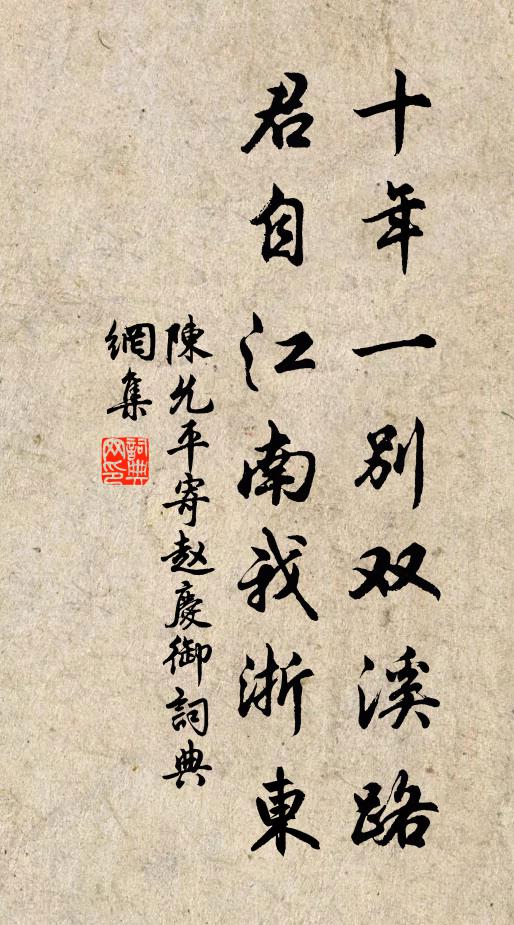 十年一别双溪路
君自江南我浙東
陳允平寄赵慶御詞典
網集
詞典網印